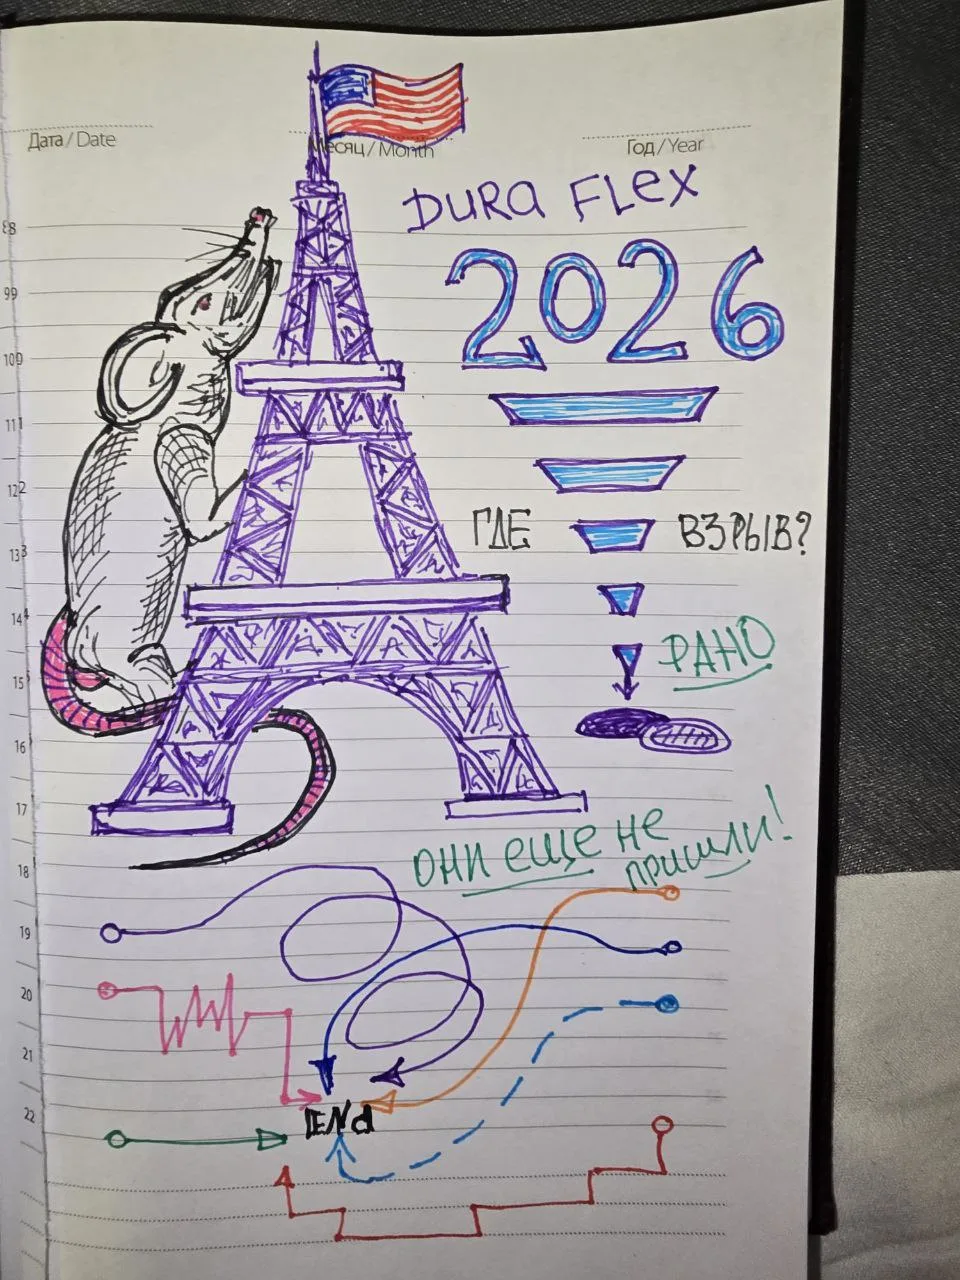 Дата/Date
Месяц/Month
Год/Year
DURA FLEX
2026
ГДЕ ВЗРЫВ?
РАНО
ОНИ ЕЩЕ НЕ
ПРИШЛИ!
END
88
99
109
111
122
133
14
15
16
17
18
19
20
21
22